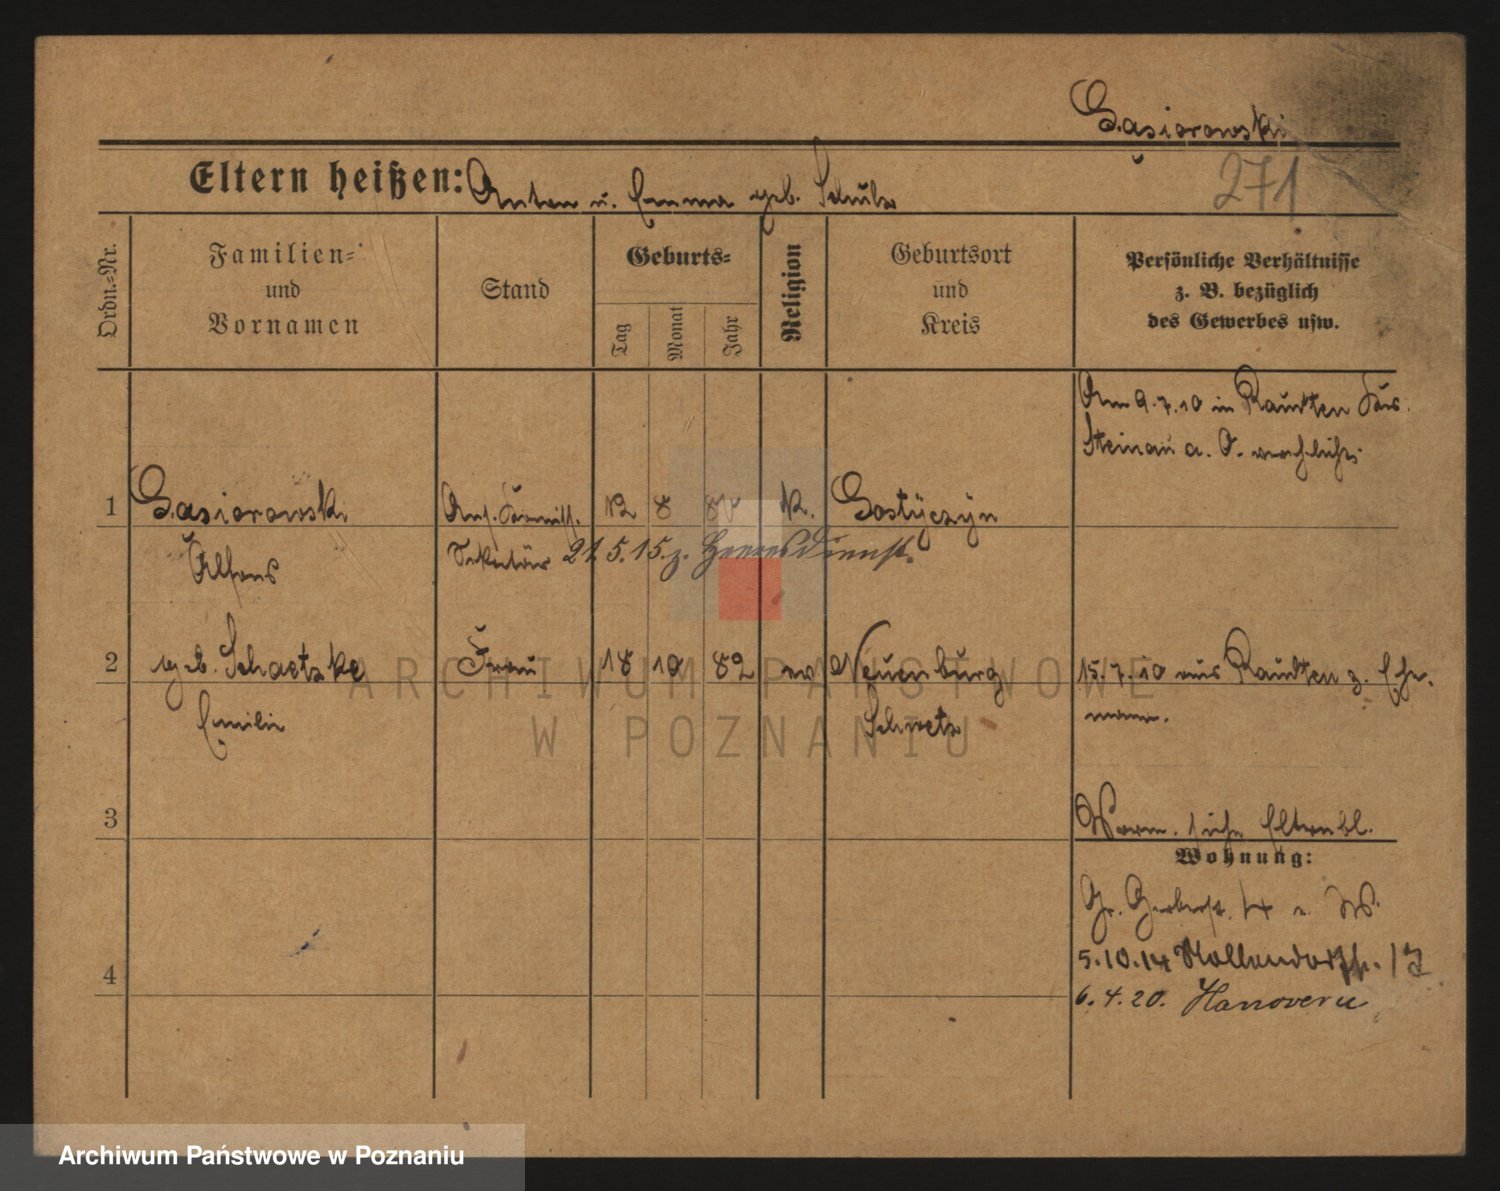 Gasiorowski
271
Eltern heißen: Anton u. Emma geb. Schulz
Ordn.-Nr.
Familien-
und
Vornamen
Stand
Geburts-
Tag
Monat
Jahr
Religion
Geburtsort
und
Kreis
Persönliche Verhältnisse
z. B. bezüglich
des Gewerbes usw.
Am 9.7.10 in Raudten Krs.
Steinau a. O.
1 Gasiorowski 12 8 k. Gostyczyn
Alfons Sekretär 21.5.15. z. Heeresdienst.
2 geb. Schaetzke Frau 18 10 82 ev Neuenburg 15.7.10 aus Raudten z. Ehe-
Emilie Schwetz mann.
3 Vorm. siehe Elternbl.
Wohnung:
Gr. Gerberst.
4 5.10.14 Nollendorfstr.
6.4.20. Hanover
ARCHIWUM PAŃSTWOWE
W POZNANIU
Archiwum Państwowe w Poznaniu